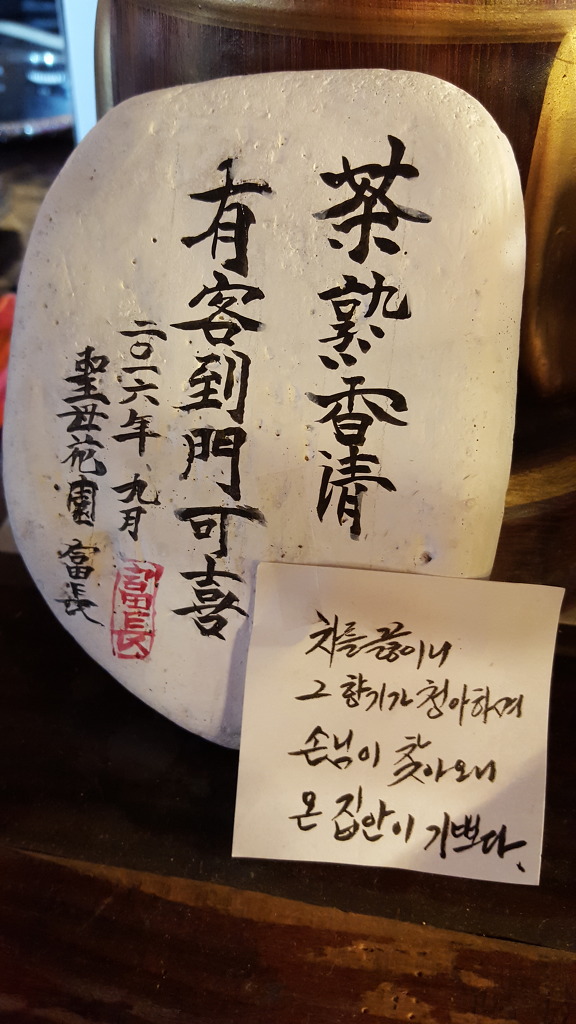 茶熟香清
有客到門可喜
二〇一六年、九月
聖母花園 富長
富長
차를 끓이니
그 향기가 청아하며
손님이 찾아오니
온 집안이 기쁘다.